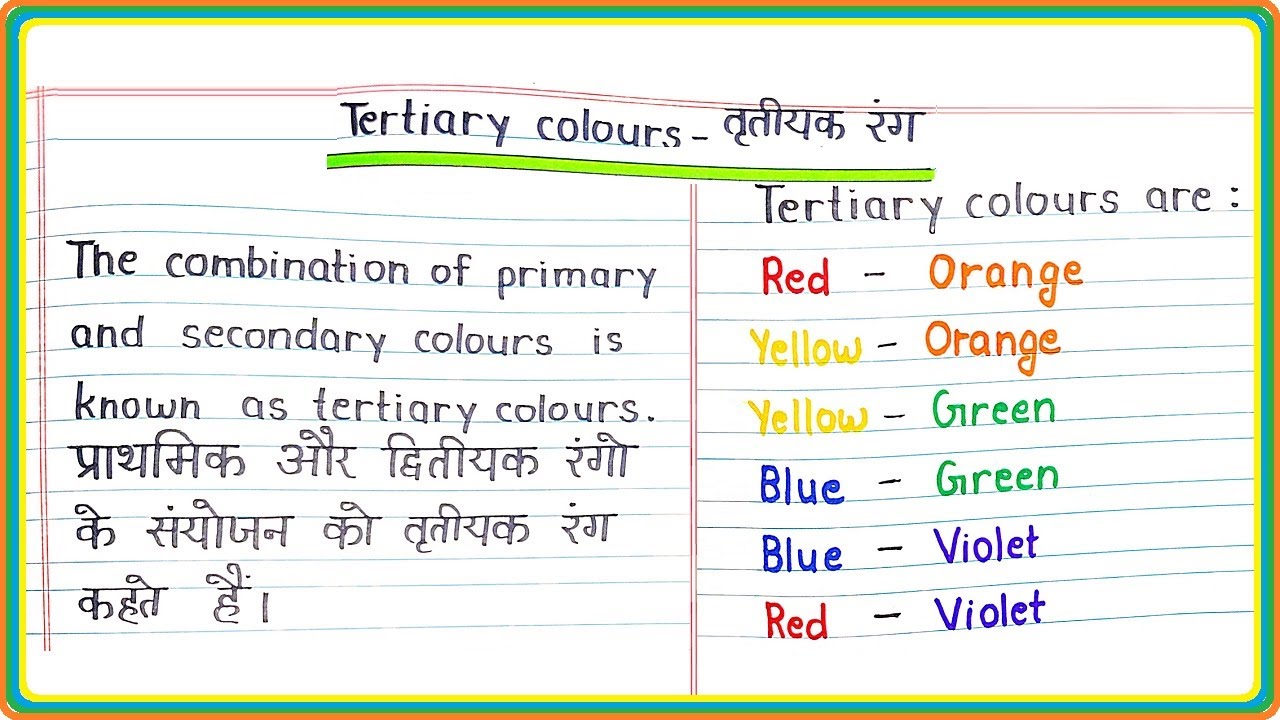 Tertiary colours - तृतीयक रंग
The combination of primary
and secondary colours is
known as tertiary colours.
प्राथमिक और द्वितीयक रंगो
के संयोजन को तृतीयक रंग
कहते हैं।
Tertiary colours are :
Red - Orange
Yellow - Orange
Yellow - Green
Blue - Green
Blue - Violet
Red - Violet